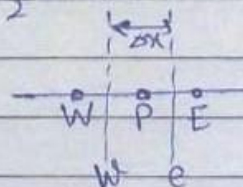 2
Δx
W P E
w e